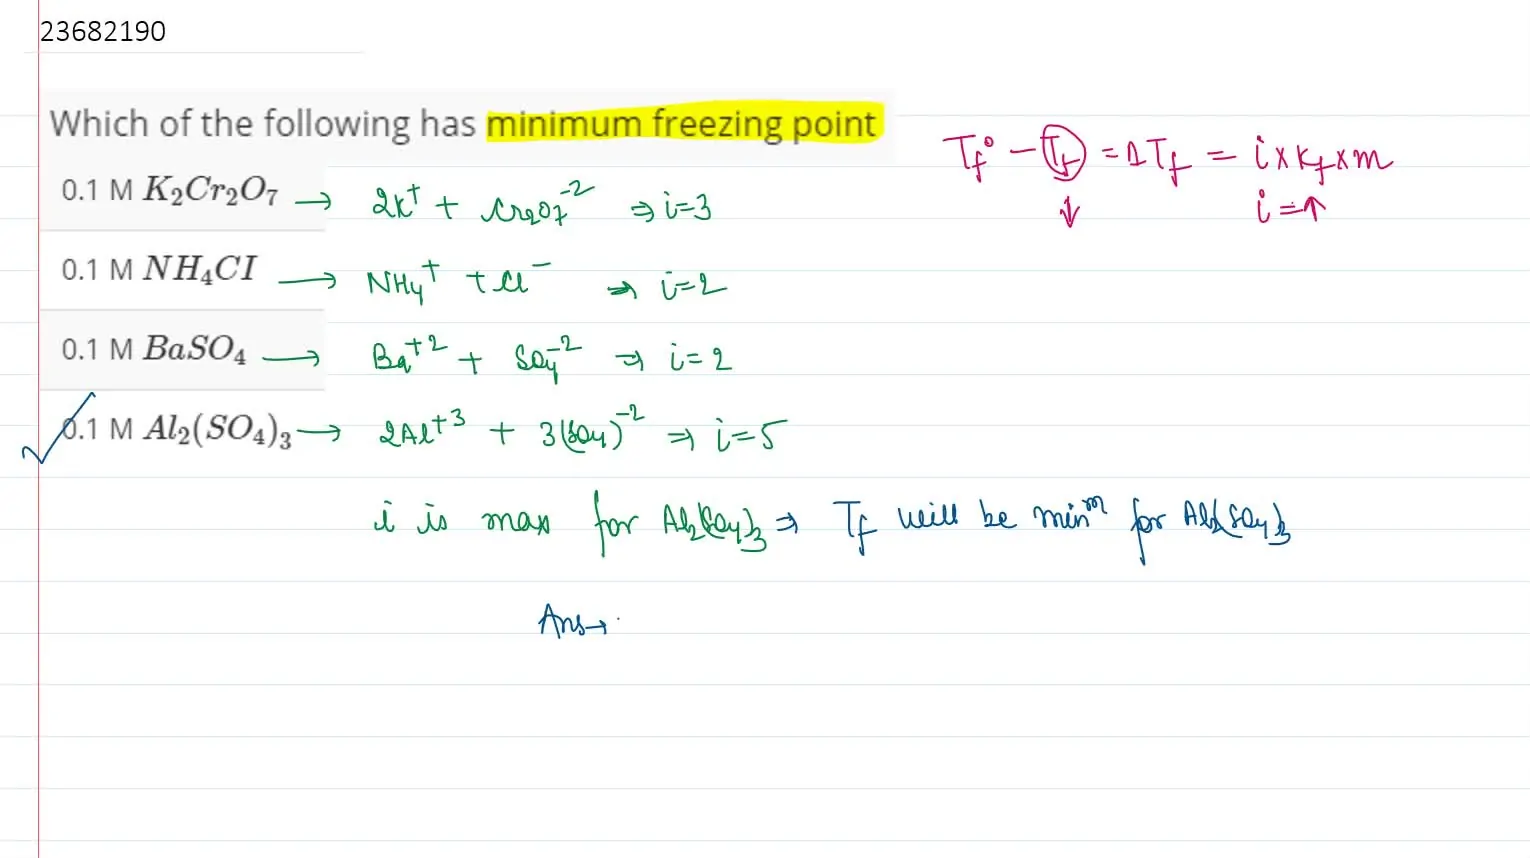 23682190
Which of the following has minimum freezing point
Tf° - Tf = ΔTf = i×Kf×m
↓ i=↑
0.1 M K₂Cr₂O₇ → 2K⁺ + Cr₂O₇⁻² ⇒ i=3
0.1 M NH₄CI → NH₄⁺ + Cl⁻ ⇒ i=2
0.1 M BaSO₄ → Ba⁺² + SO₄⁻² ⇒ i=2
0.1 M Al₂(SO₄)₃ → 2Al⁺³ + 3(SO₄)⁻² ⇒ i=5
i is max for Al₂(SO₄)₃ ⇒ Tf will be minᵐ for Al₂(SO₄)₃
Ans→